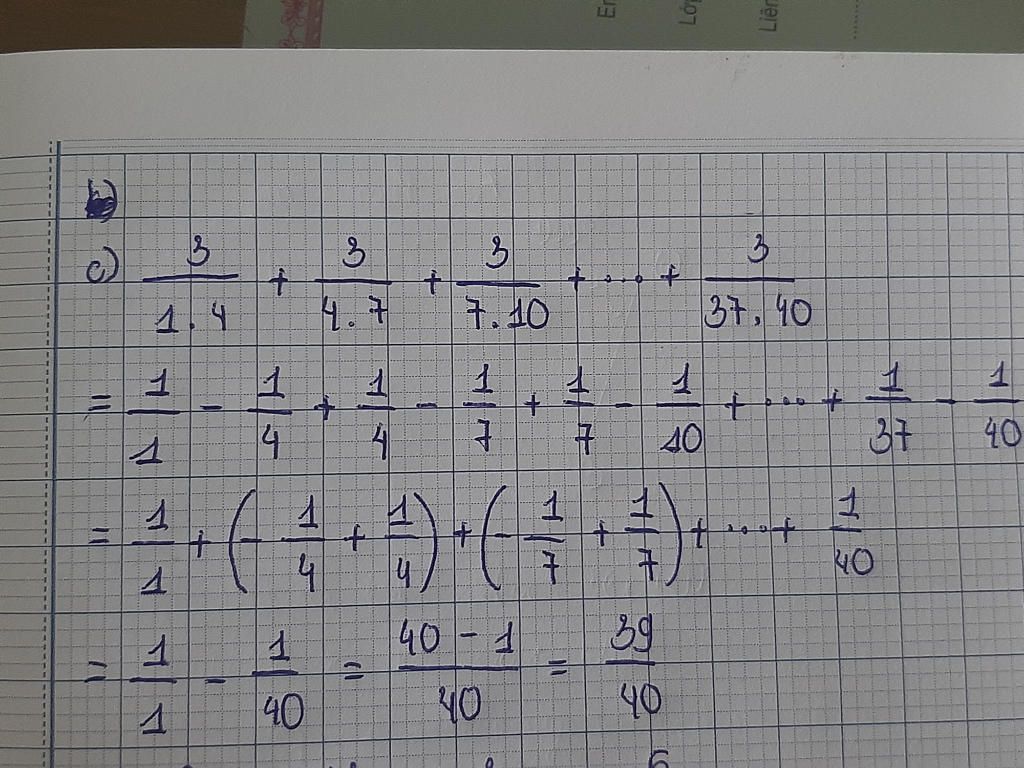 En
Lớp
Liên
b)
c) 3/(1.4) + 3/(4.7) + 3/(7.10) + ... + 3/(37.40)
= 1/1 - 1/4 + 1/4 - 1/7 + 1/7 - 1/10 + ... + 1/37 - 1/40
= 1/1 + (- 1/4 + 1/4) + (- 1/7 + 1/7) + ... + 1/40
= 1/1 - 1/40 = (40 - 1)/40 = 39/40